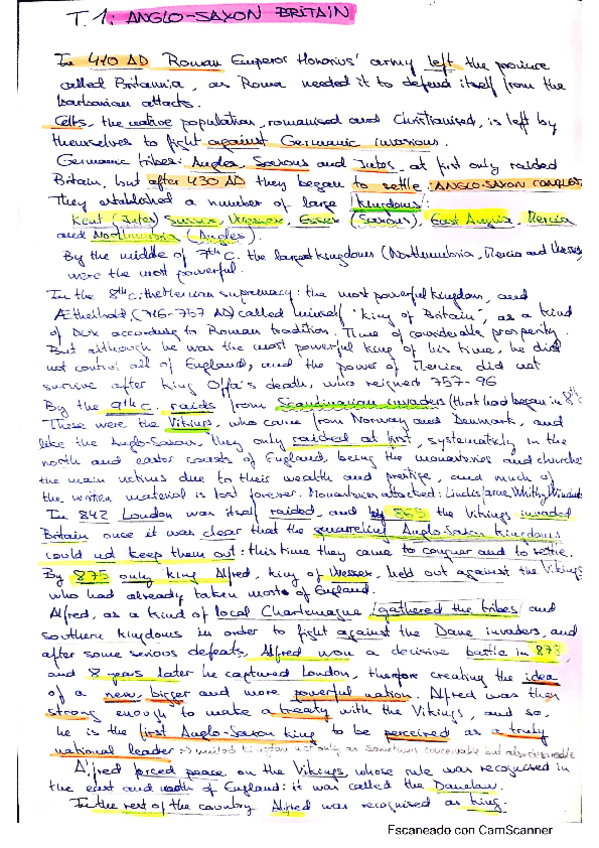 T.1: ANGLO-SAXON BRITAIN
In 410 AD Roman Emperor Honorius' army left the province
called Britannia, as Roma needed it to defend itself from the
barbarian attacks.
Celts, the native population, romanised and Christianised, is left by
themselves to fight against Germanic invasions.
Germanic tribes: Angles, Saxons and Jutes, at first only raided
Britain, but after 430 AD they began to settle: ANGLO-SAXON CONQUEST
They established a number of large kingdoms:
Kent (Jutes) Sussex, Wessex, Essex (Saxons), East Anglia, Mercia
and Northumbria (Angles).
By the middle of 7th c. the largest kingdoms (Northumbria, Mercia and Wessex)
were the most powerful.
In the 8th c: the Mercian supremacy: the most powerful kingdom, and
Æthelbald, (716-757 AD) called himself "king of Britain", as a kind
of dux according to Roman tradition. Time of considerable prosperity.
But although he was the most powerful king of his time, he did
not control all of England, and the power of Mercia did not
survive after king Offa's death, who reigned 757-96
By the 9th c. raids from Scandinavian invaders (that had began in 8th c.
These were the Vikings, who came from Norway and Denmark, and
like the Anglo-Saxons, they only raided at first, systematicly in the
north and easter coasts of England, being the monasteries and churches
the main victims due to their wealth and prestige, and much of
the written material is lost forever. Monasteries attacked: Lindisfarne, Whitby,
In 842 London was itself raided, and by 865 the Vikings invaded
Britain once it was clear that the quarreling Anglo-Saxon kingdoms
could not keep them out: this time they came to conquer and to settle.
By 875 only king Alfred, king of Wessex, held out against the Vikings
who had already taken most of England.
Alfred, as a kind of local Charlemagne gathered the tribes and
southern kingdoms in order to fight against the Dane invaders, and
after some serious defeats, Alfred won a decisive battle in 878,
and 8 years later he captured London, therefore creating the idea
of a new, bigger and more powerful nation. Alfred was then
strong enough to make a treaty with the Vikings, and so,
he is the first Anglo-Saxon king to be perceived as a truly
national leader => united kingdom not only as something conceivable but also
Alfred forced peace on the Vikings, whose rule was recognised in
the east and north of England: it was called the Danelaw.
In the rest of the country Alfred was recognised as king.
Escaneado con CamScanner